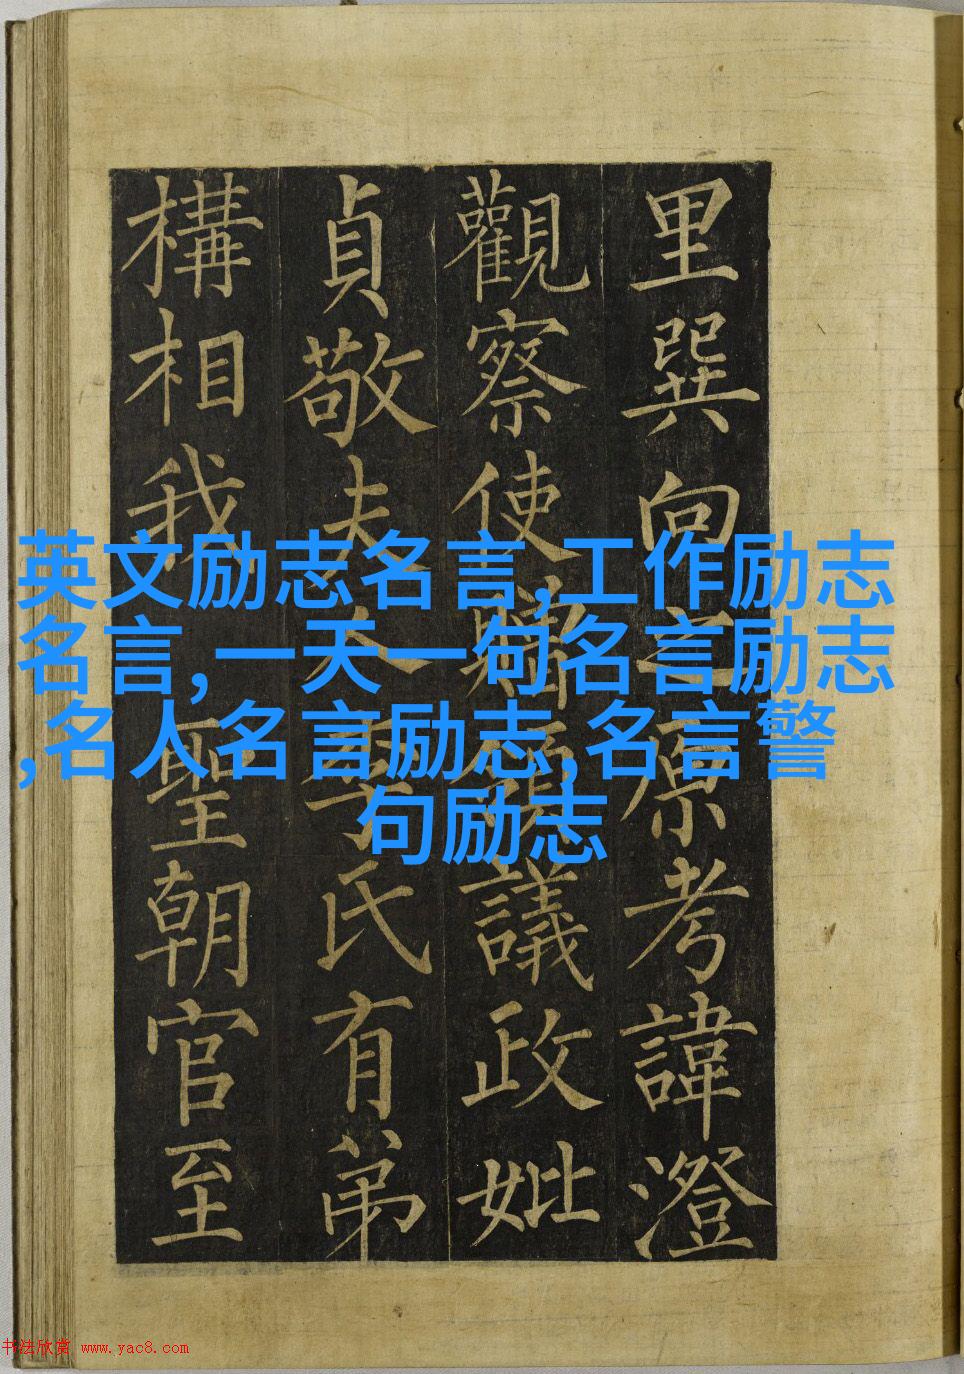 里巽向之原考諱澄
觀察使議政妣
貞敬夫人氏有弟
構相我聖朝官至
英文励志名言,工作励志
名言,一天一句名言励志
,名人名言励志,名言警
句励志
书法欣赏 www.yac8.com